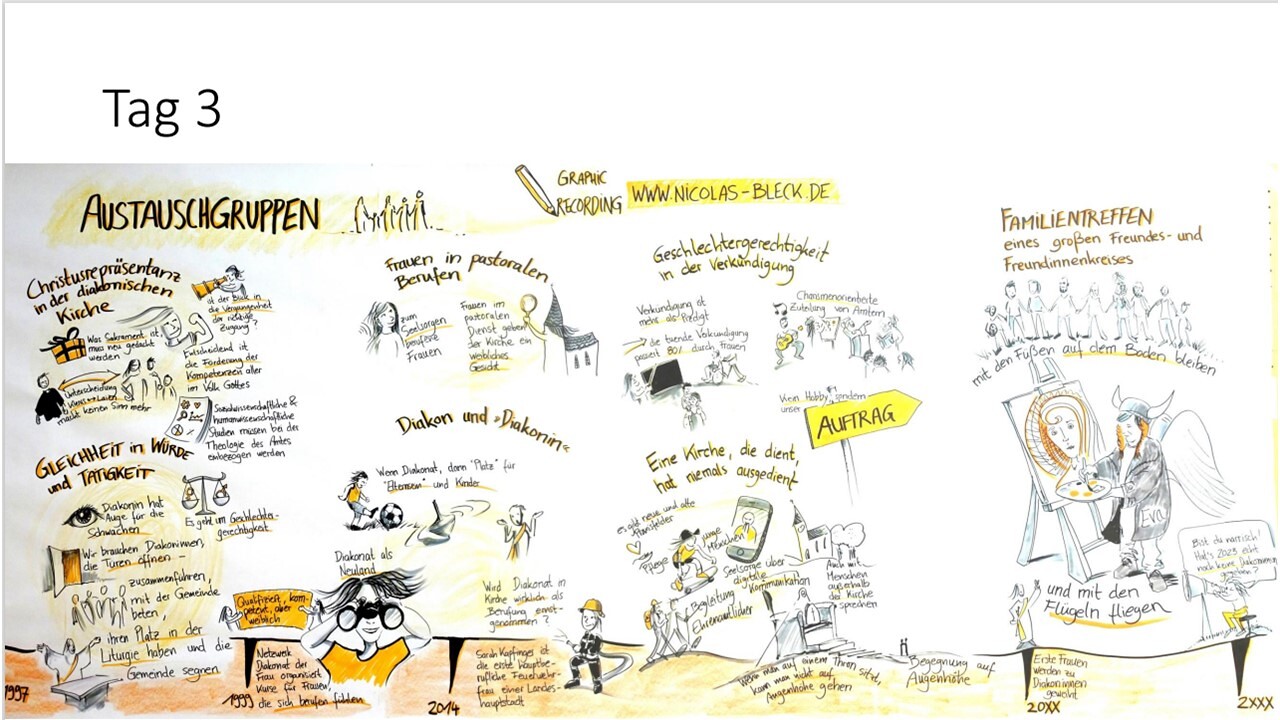 Tag 3
GRAPHIC
RECORDING
WWW.NICOLAS-BLECK.DE
AUSTAUSCHGRUPPEN
Christusrepräsentanz
in der diakonischen
Kirche
ist der Blick in
die Vergangenheit
der richtige
Zugang?
Was Sakrament ist,
muss neu gedacht
werden
Entscheidend ist
die Förderung der
Kompetenzen aller
im Volk Gottes
Unterscheidung
macht keinen Sinn mehr
Sozialwissenschaftliche &
humanwissenschaftliche
Studien müssen bei der
Theologie des Amtes
einbezogen werden
GLEICHHEIT in WÜRDE
und TÄTIGKEIT
Diakonin hat
Auge für die
Schwachen
Es geht um Geschlechter-
gerechtigkeit
Wir brauchen Diakoninnen,
die Türen öffnen -
zusammenführen,
mit der Gemeinde
beten,
ihren Platz in der
Liturgie haben und die
Gemeinde segnen
Frauen in pastoralen
Berufen
zum
Seelsorgen
berufene
Frauen
Frauen im
pastoralen
Dienst geben
der Kirche ein
weibliches
Gesicht
Diakon und "Diakonin"
Wenn Diakonat, dann "Platz" für
"Elternsein" und Kinder
Diakonat als
Neuland
Wird Diakonat in
Kirche wirklich als
Berufung ernst-
genommen?
Qualifiziert, kom-
petent, aber
weiblich
Geschlechtergerechtigkeit
in der Verkündigung
Verkündigung ist
mehr als Predigt
die tuende Verkündigung
passiert 80% durch Frauen
Charismenorientierte
Zuteilung von Ämtern
Kein Hobby, sondern
unser
AUFTRAG
Eine Kirche, die dient,
hat niemals ausgedient
es gibt neue und alte
Pflege
junge
Menschen
Seelsorge über
digitale
Kommunikation
Begleitung
Ehrenamtlicher
Auch mit
Menschen
außerhalb
der Kirche
sprechen
Wenn man auf einem Thron sitzt,
kann man nicht auf
Augenhöhe gehen
Begegnung auf
Augenhöhe
FAMILIENTREFFEN
eines großen Freundes- und
Freundinnenkreises
mit den Füßen auf dem Boden bleiben
EVA
und mit den
Flügeln fliegen
Bist du narrisch!
2023 echt
noch keine Diakoninnen
1997
1999
Netzwerk
Diakonat der
Frau organisiert
Kurse für Frauen,
die sich berufen fühlen
2014
Sarah Kapfinger ist
die erste hauptbe-
rufliche Feuerwehr-
frau einer Landes-
hauptstadt
20XX
Erste Frauen
werden zu
Diakoninnen
geweiht
2XXX